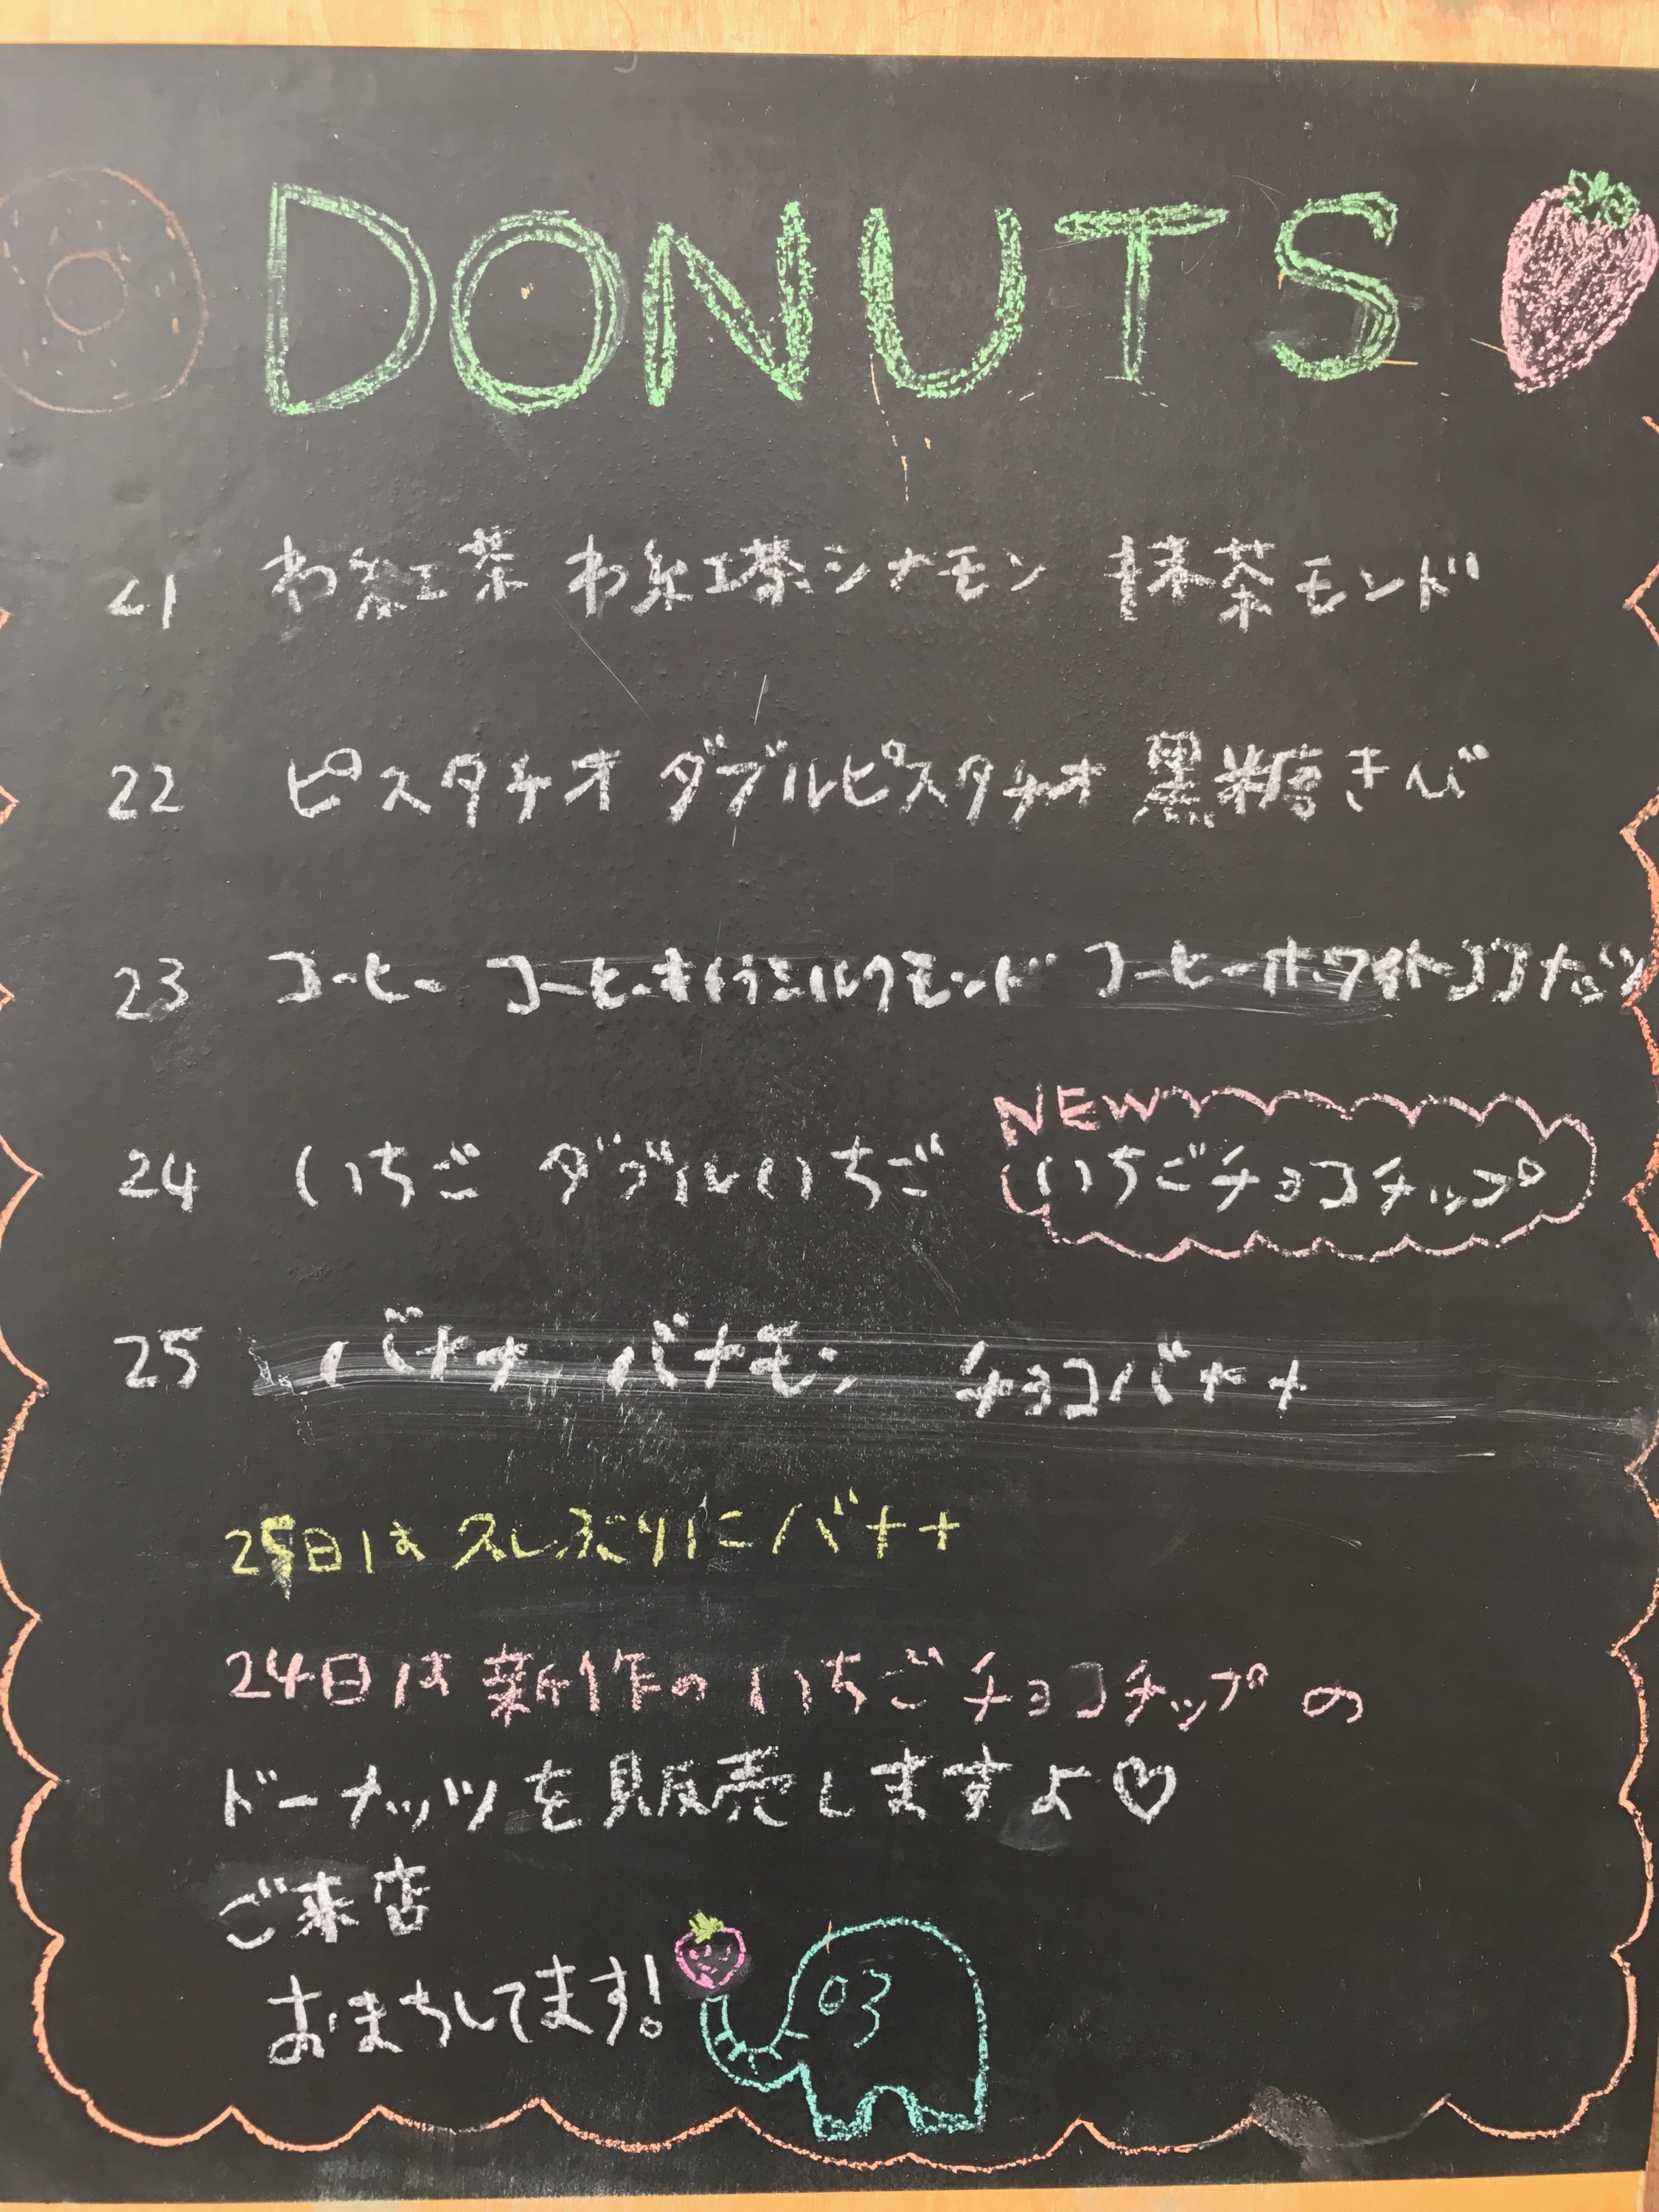 DONUTS
21 わ紅茶 わ紅茶シナモン 抹茶モンド
22 ピスタチオ ダブルピスタチオ 黒糖きび
23 コーヒー コーヒーキャラミルクモンド コーヒーホワイトココナッツ
24 いちご ダブルいちご NEW いちごチョコチップ
25 バナナ バナモン チョコバナナ
25日は久しぶりにバナナ
24日は新作のいちごチョコチップの
ドーナッツを販売しますよ♡
ご来店
おまちしてます!